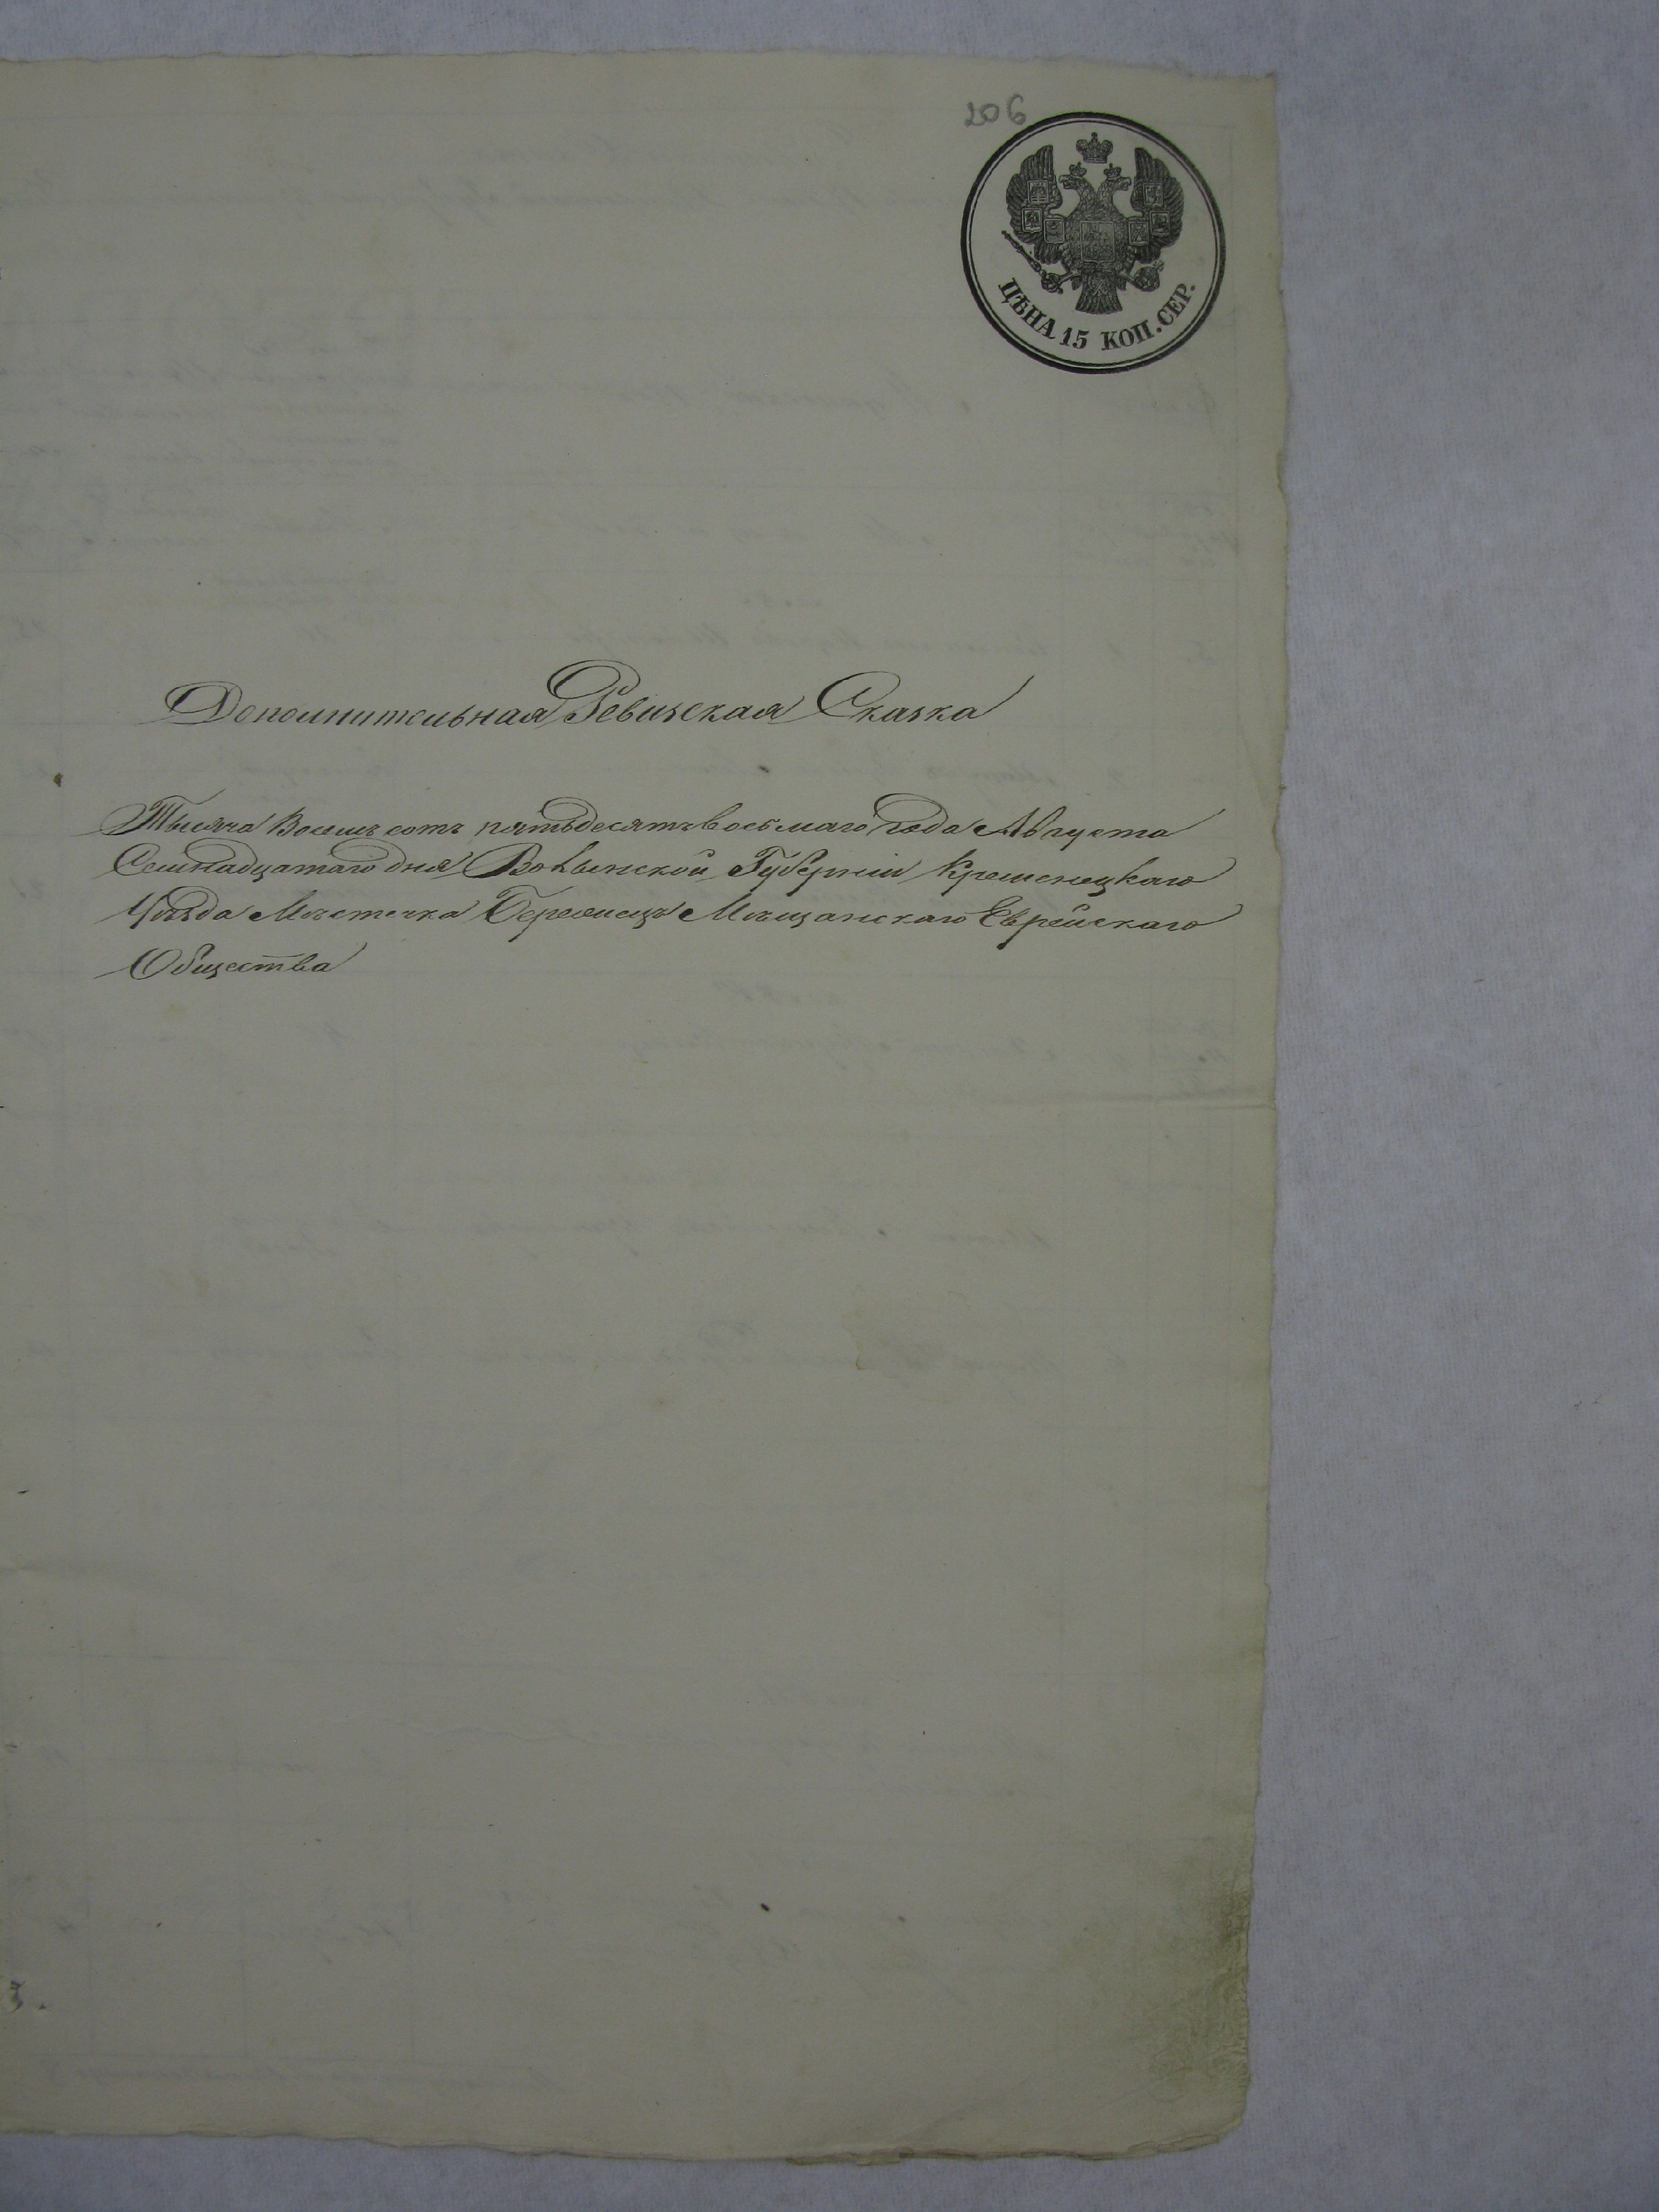 206
ЦѢНА 15 КОП. СЕР.
Дополнительная Ревизская Сказка
Тысяча Восемь сотъ пятьдесятъ восьмаго года Августа
Семнадцатаго дня Волынской Губерніи Кременецкаго
Уѣзда Мѣстечка Бережецъ Мѣщанскаго Еврейскаго
Общества
3.